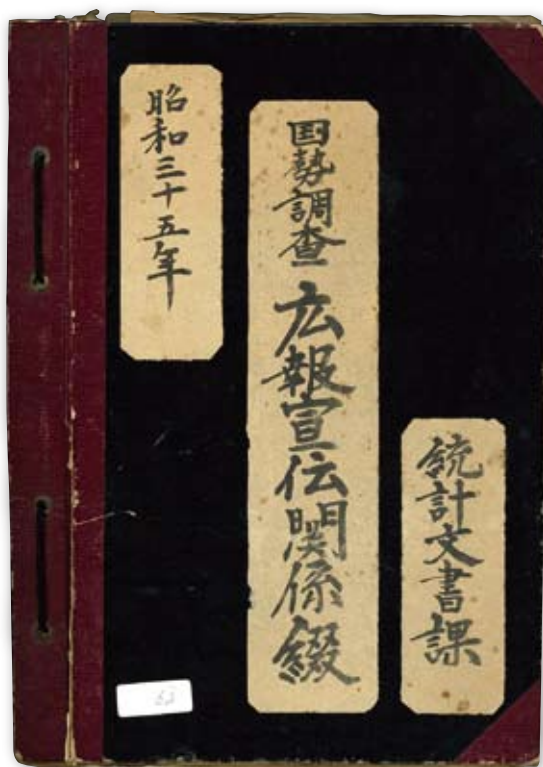 昭和三十五年
国勢調査 広報宣伝関係綴
統計文書課
62